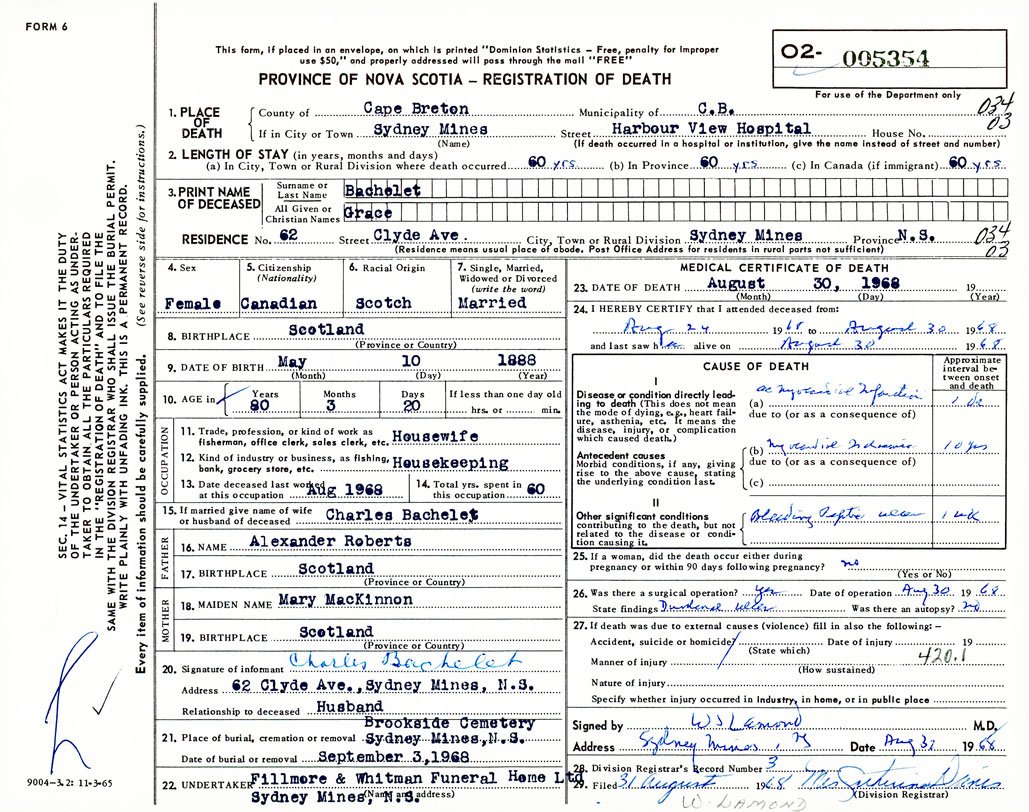 FORM 6
This form, if placed in an envelope, on which is printed "Dominion Statistics – Free, penalty for improper
use $50," and properly addressed will pass through the mail "FREE"
PROVINCE OF NOVA SCOTIA – REGISTRATION OF DEATH
O2- 005354
For use of the Department only
034
03
1. PLACE OF DEATH
County of Cape Breton Municipality of C.B.
If in City or Town Sydney Mines Street Harbour View Hospital House No.
(Name) (If death occurred in a hospital or institution, give the name instead of street and number)
2. LENGTH OF STAY (in years, months and days)
(a) In City, Town or Rural Division where death occurred 60 yrs (b) In Province 60 yrs (c) In Canada (if immigrant) 60 yrs
3. PRINT NAME OF DECEASED
Surname or Last Name Bachelet
All Given or Christian Names Grace
RESIDENCE No. 62 Street Clyde Ave. City, Town or Rural Division Sydney Mines Province N.S.
(Residence means usual place of abode. Post Office Address for residents in rural parts not sufficient)
034
03
4. Sex Female
5. Citizenship (Nationality) Canadian
6. Racial Origin Scotch
7. Single, Married, Widowed or Divorced (write the word) Married
8. BIRTHPLACE Scotland
(Province or Country)
9. DATE OF BIRTH May 10 1888
(Month) (Day) (Year)
10. AGE in Years 80 Months 3 Days 20 If less than one day old
hrs. or min.
OCCUPATION
11. Trade, profession or kind of work as
fisherman, office clerk, sales clerk, etc. Housewife
12. Kind of industry or business, as fishing,
bank, grocery store, etc. Housekeeping
13. Date deceased last worked
at this occupation Aug 1968
14. Total yrs. spent in
this occupation 60
15. If married give name of wife
or husband of deceased Charles Bachelet
FATHER
16. NAME Alexander Roberts
17. BIRTHPLACE Scotland
(Province or Country)
MOTHER
18. MAIDEN NAME Mary MacKinnon
19. BIRTHPLACE Scotland
(Province or Country)
20. Signature of informant Charles Bachelet
Address 62 Clyde Ave., Sydney Mines, N.S.
Relationship to deceased Husband
Brookside Cemetery
21. Place of burial, cremation or removal Sydney Mines, N.S.
Date of burial or removal September 3, 1968
22. UNDERTAKER Fillmore & Whitman Funeral Home Ltd
Sydney Mines, N.S.
(Name and address)
MEDICAL CERTIFICATE OF DEATH
23. DATE OF DEATH August 30, 1968 19
(Month) (Day) (Year)
24. I HEREBY CERTIFY that I attended deceased from:
Aug 24 1968 to August 30 1968
and last saw her alive on August 30 1968
CAUSE OF DEATH
Approximate interval between onset and death
I
Disease or condition directly leading to death (This does not mean
the mode of dying, e.g., heart failure, asthenia, etc. It means the
disease, injury, or complication
which caused death.)
(a) ac myocardial Infarction
due to (or as a consequence of)
Antecedent causes
Morbid conditions, if any, giving
rise to the above cause, stating
the underlying condition last.
(b) myocardial Ischaemia 10 yrs
due to (or as a consequence of)
(c)
II
Other significant conditions
contributing to the death, but not
related to the disease or condition causing it.
Bleeding Peptic ulcer 1 wk
25. If a woman, did the death occur either during
pregnancy or within 90 days following pregnancy? no
(Yes or No)
26. Was there a surgical operation? yes Date of operation Aug 30 1968
State findings Duodenal ulcer Was there an autopsy? no
27. If death was due to external causes (violence) fill in also the following: –
Accident, suicide or homicide? Date of injury 19
(State which)
420.1
Manner of injury
(How sustained)
Nature of injury
Specify whether injury occurred in Industry, in home, or in public place
Signed by W S Lamond M.D.
Address Sydney Mines, NS Date Aug 31 1968
28. Division Registrar's Record Number 3
29. Filed 31 August 1968
(Division Registrar)
W. LAMOND
SEC. 14 – VITAL STATISTICS ACT MAKES IT THE DUTY
OF THE UNDERTAKER OR PERSON ACTING AS UNDER-
TAKER TO OBTAIN ALL THE PARTICULARS REQUIRED
IN THE "REGISTRATION OF DEATH" AND TO FILE THE
SAME WITH THE DIVISION REGISTRAR WHO SHALL ISSUE THE BURIAL PERMIT.
WRITE PLAINLY WITH UNFADING INK. THIS IS A PERMANENT RECORD.
Every item of information should be carefully supplied. (See reverse side for instructions.)
9004-3.2: 11-3-65